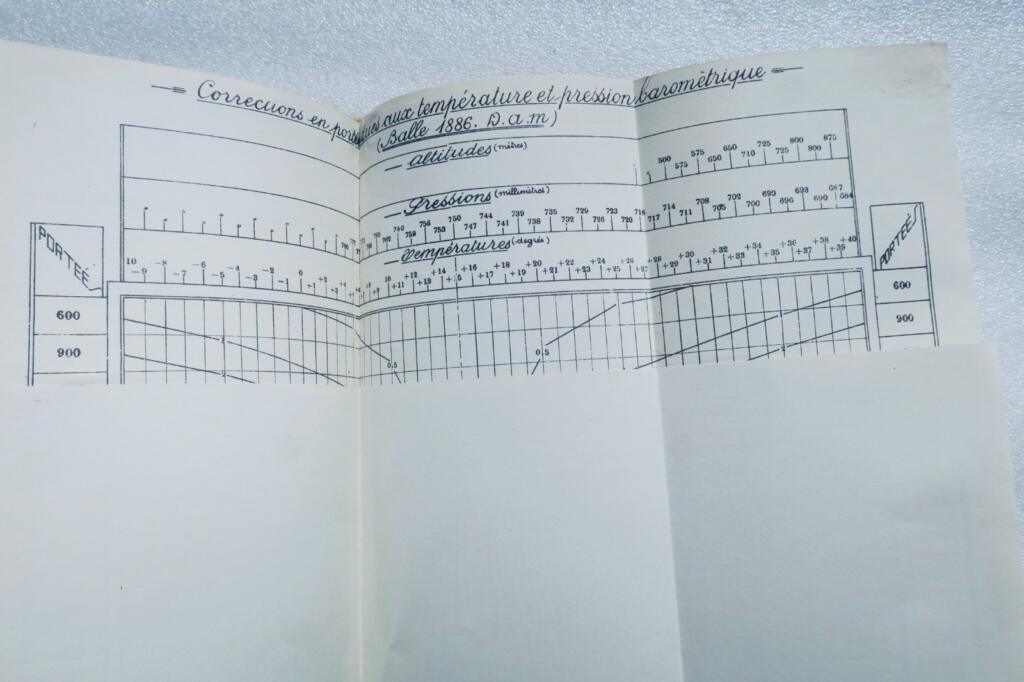 Corrections en portées dues aux température et pression barométrique
(Balle 1886. D.a.m)
altitudes (mètres)
500 575 575 650 650 710 725 725 800 800 875
Pressions (millimètres)
762 760 759 756 753 750 747 744 741 739 738 735 732 729 726 723 720 717 714 711 708 705 702 700 699 696 693 690 687 684
Températures (degrés)
10 -9 -8 -7 -6 -5 -4 -3 -2 -1 0 +1 +2 10 +11 +12 +13 +14 +16 +17 +18 +19 +20 +21 +22 +23 +24 +25 +26 +28 +29 +30 +31 +32 +33 +34 +35 +36 +37 +38 +39 +40
PORTEÉ
600
900
PORTEÉS
600
900
1
0,5
0,5